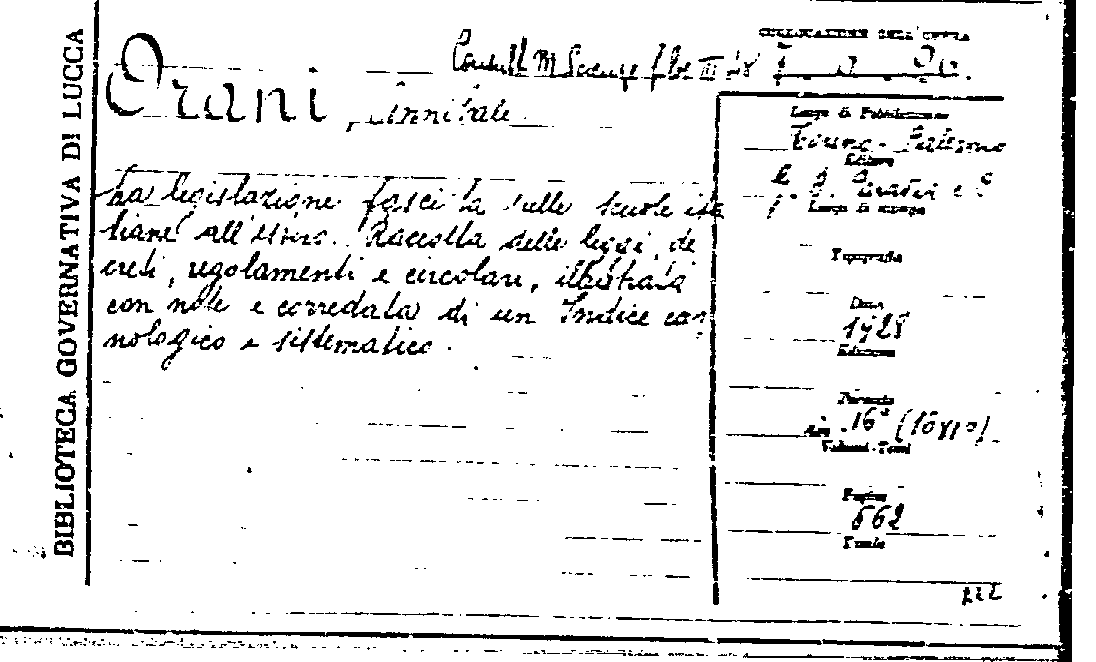 BIBLIOTECA GOVERNATIVA DI LUCCA
COLLOCAZIONE DELL'OPERA
Orani, Annibale
La legislazione fascista sulle scuole ita
liane all'estero. Raccolta delle leggi, de
creti, regolamenti e circolari, illustrata
con note e corredata di un Indice cro
nologico e sistematico.
Luogo di Pubblicazione
Torino - Palermo
Editore
Luogo di stampa
Tipografia
Data
1928
Edizione
Formato
in 16°
Volumi-Tomi
Pagine
662
Tavole